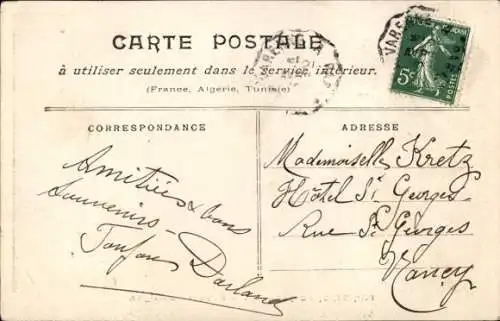 CARTE POSTALE
à utiliser seulement dans le service intérieur.
(France, Algérie, Tunisie)
CORRESPONDANCE
ADRESSE
Amitiés & bons
Souvenirs -
Darland
Mademoiselle Kretz
Hôtel St Georges
Rue St Georges
Nancy
5c
POSTES